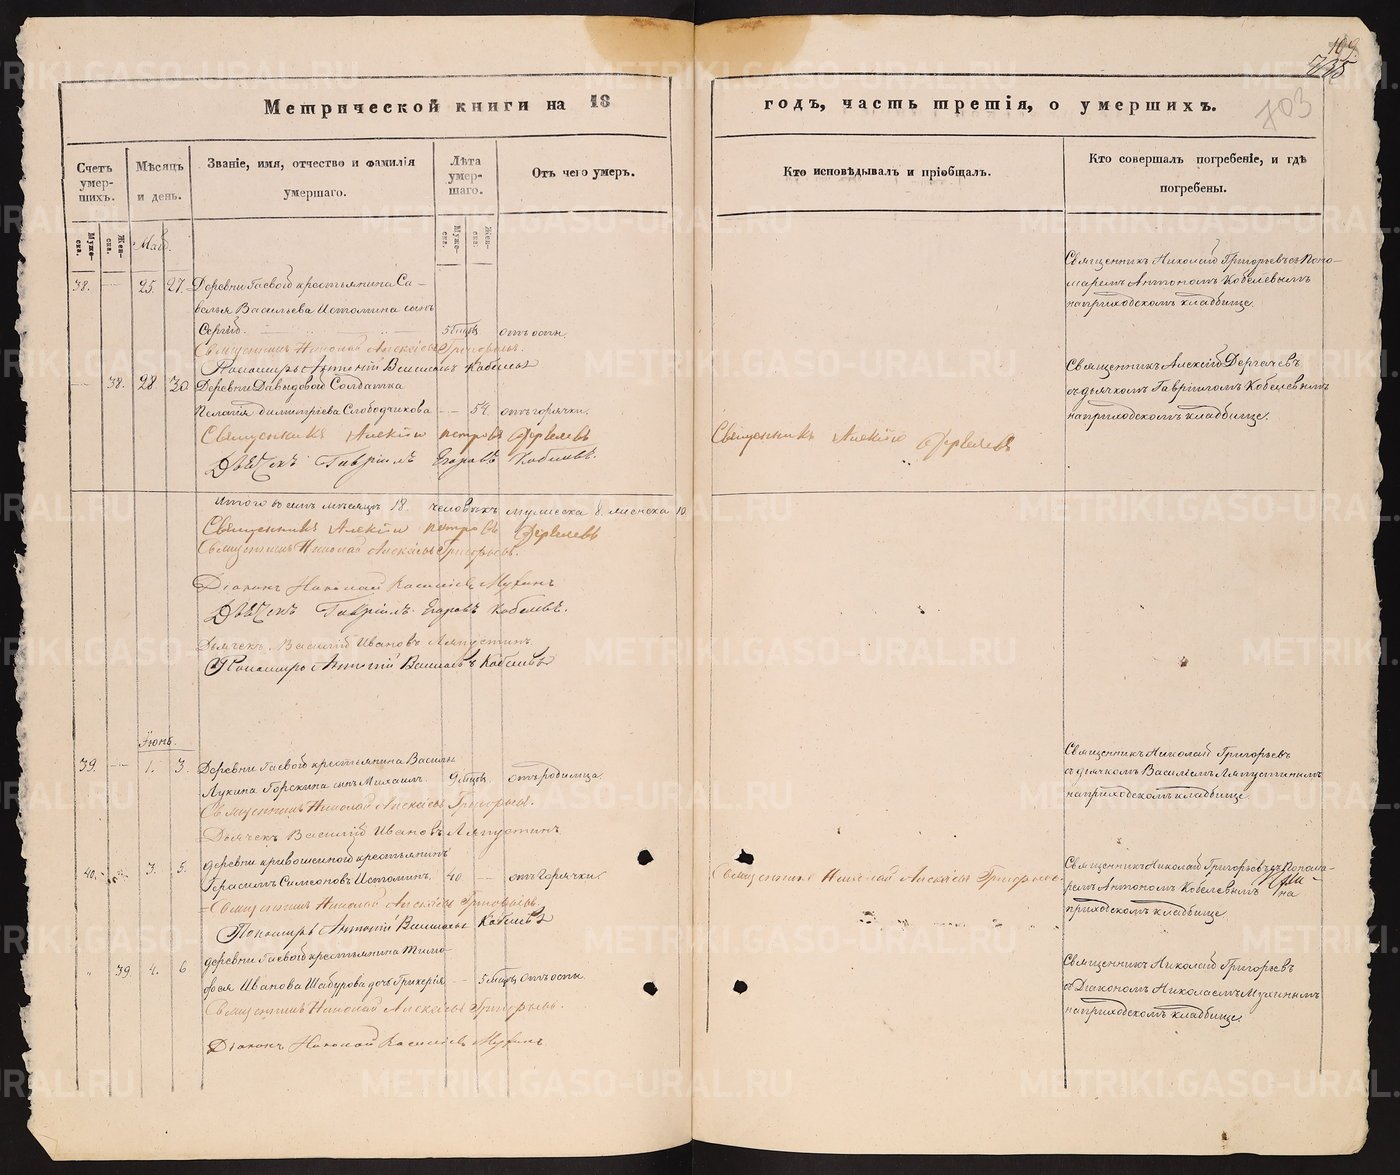 109
735
103
Метрической книги на 18
годъ, часть третія, о умершихъ.
Счетъ умер-шихъ.
Мѣсяцъ и день.
Званіе, имя, отчество и фамилія умершаго.
Лѣта умер-шаго.
Отъ чего умеръ.
Кто исповѣдывалъ и пріобщалъ.
Кто совершалъ погребеніе, и гдѣ погребены.
Муже-ска.
Жен-ска.
Муже-ска.
Жен-ска.
Май.
Священникъ Николай Григорьевъ съ Поно-
маремъ Антономъ Кобелевымъ
на приходскомъ кладбище.
38. 25. 27. Деревни Гаевой крестьянина Са-
велья Васильева Истомина сынъ
Сергѣй. 5 мѣсяц. отъ оспы.
Священникъ Николай Алексѣевъ Григорьевъ.
Пономарь Антоній Васильевъ Кобелевъ
38. 28. 30. Деревни Давыдовой Солдатка
Пелагія Димитріева Слободчикова 54. отъ горячки.
Священникъ Алексій Дергачевъ
съ дьячкомъ Гавріиломъ Кобелевымъ
на приходскомъ кладбище.
Священникъ Алексій Петровъ Дергачевъ
Священникъ Алексій Дергачевъ
Дьячекъ Гавріилъ Егоровъ Кобелевъ.
Итого въ семъ мѣсяцѣ 18 человѣкъ мужеска 8. женска 10
Священникъ Алексій Петровъ Дергачевъ
Священникъ Николай Алексѣевъ Григорьевъ.
Діаконъ Николай Василіевъ Мухинъ
Дьячекъ Гавріилъ Егоровъ Кобелевъ.
Дьячекъ Василій Ивановъ Ляпустинъ.
Пономарь Антоній Васильевъ Кобелевъ
Іюнь.
39. 1. 3. Деревни Гаевой крестьянина Василья
Лукина Горскина сынъ Михаилъ. 9 мѣсяц. отъ родимца.
Священникъ Николай Григорьевъ
съ дьячкомъ Василіемъ Ляпустинымъ
на приходскомъ кладбище.
Священникъ Николай Алексѣевъ Григорьевъ.
Дьячекъ Василій Ивановъ Ляпустинъ
40. 3. 5. деревни кривошеиной крестьянинъ
Герасимъ Симеоновъ Истоминъ. 40 отъ горячки
Священникъ Николай Алексѣевъ Григорьевъ
Священникъ Николай Григорьевъ съ Понома-
ремъ Антономъ Кобелевымъ на
приходскомъ кладбище
Священникъ Николай Алексѣевъ Григорьевъ.
Пономарь Антоній Васильевъ Кобелевъ
39 4. 6 деревни Гаевой крестьянина Тимо-
фея Иванова Шабурова дочь Гликерія 5 мѣсяц. отъ оспы.
Священникъ Николай Григорьевъ
съ Діакономъ Николаемъ Мухинымъ
на приходскомъ кладбище.
Священникъ Николай Алексѣевъ Григорьевъ.
Діаконъ Николай Василіевъ Мухинъ
METRIKI.GASO-URAL.RU